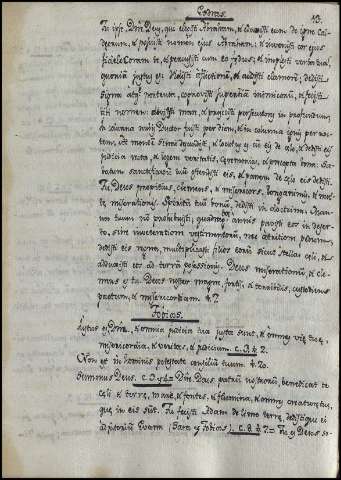 Esdras. 13.
Tu ipse Dñe Deus, qui elegisti Abraham, et eduxisti eum de igne Cal-
deorum, et posuisti nomen ejus Abraham; et invenisti cor ejus
fidele coram te, et percussisti cum eo fędus; et implesti verba tua,
quoniam justus es: Vidisti afflictionem, et audisti clamorem; dedisti
signa atq portenta, cognovisti superbiam inimicorum, et fecisti
tibi nomen: divisisti mare, et projecisti persecutores in profundum,
in columna nubis Ductor fuisti per diem, et in columna ignis per noc-
tem, ad montem Sinai descendisti, et locutus es cum eis de cęlo, et dedisti eis
judicia recta, et legem veritatis, Ceremonias, et pręcepta bona: Sab-
batum sanctificatum ostendisti eis, et panem de cęlo eis dedisti.
Tu Deus propitius, clemens, et misericors, longanimis, et mul-
tę miserationis; Spiritum tuum bonum dedisti in doctrina: Man-
na tuum non prohibuisti, quadraginta annis pavisti eos in deser-
to, sine inveteratione vestimentorum, nec attritione pedum,
dedisti eis regna, multiplicasti filios eorum sicut stellas cęli, et
adduxisti eos ad terrę possessionem. Deus miserationum et cle-
mens es tu. Deus noster magne, fortis, et terribilis, custodiens
pactum, et misericordiam. # 7.
Tobias.
Justus es Dñe, et omnia judicia tua justa sunt, et omnes vię tuę,
misericordia, et veritas, et judicium. c. 3. # 2.
Non est in hominis potestate consilium tuum. # 20.
Summus Deus. c. 3. Dñe Deus patrum nostrorum, benedicat te
cęli et terrę, mare, et fontes, et flumina, et omnes creaturę tuę,
quę in eis sunt. Tu fecisti Adam de limo terrę, dedistique ei
adjutorium Evam (Sara et Tobias). c. 8. # 7. = Tu es Deus so-